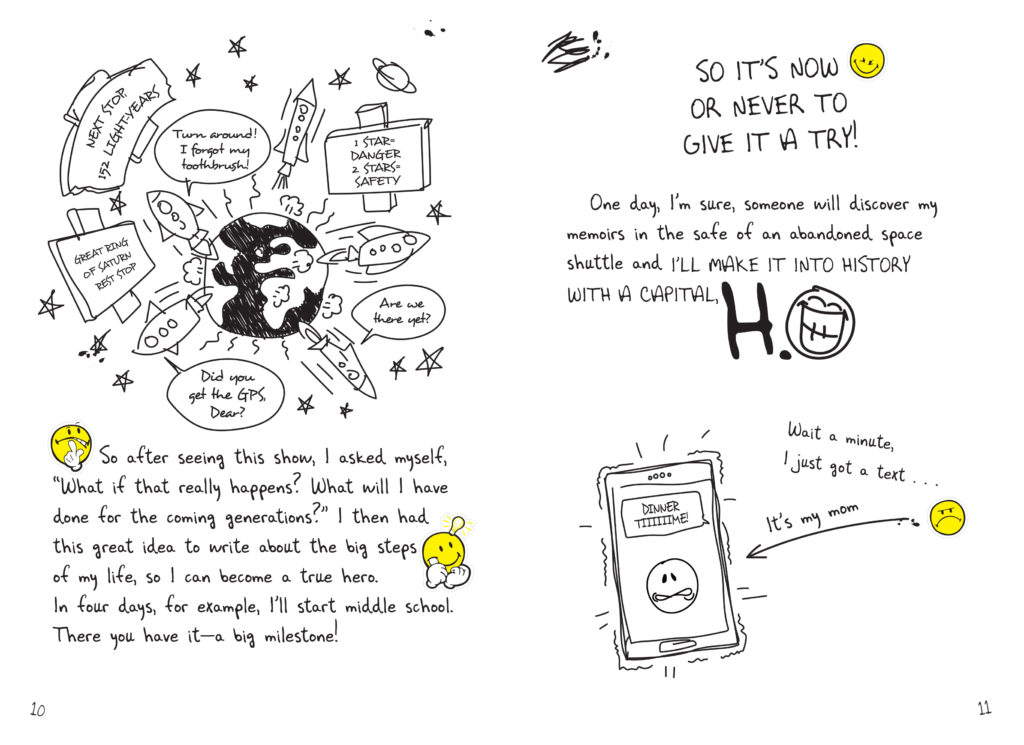 NEXT STOP:
152 LIGHT-YEARS
Turn around!
I forgot my
toothbrush!
1 STAR=
DANGER
2 STARS=
SAFETY
GREAT RING
OF SATURN
REST STOP
Are we
there yet?
Did you
get the GPS,
Dear?
So after seeing this show, I asked myself,
“What if that really happens? What will I have
done for the coming generations?” I then had
this great idea to write about the big steps
of my life, so I can become a true hero.
In four days, for example, I’ll start middle school.
There you have it—a big milestone!
10
SO IT’S NOW
OR NEVER TO
GIVE IT A TRY!
One day, I’m sure, someone will discover my
memoirs in the safe of an abandoned space
shuttle and I’LL MAKE IT INTO HISTORY
WITH A CAPITAL, H.
Wait a minute,
I just got a text . . .
DINNER
TIIIIIIME!
It’s my mom
11